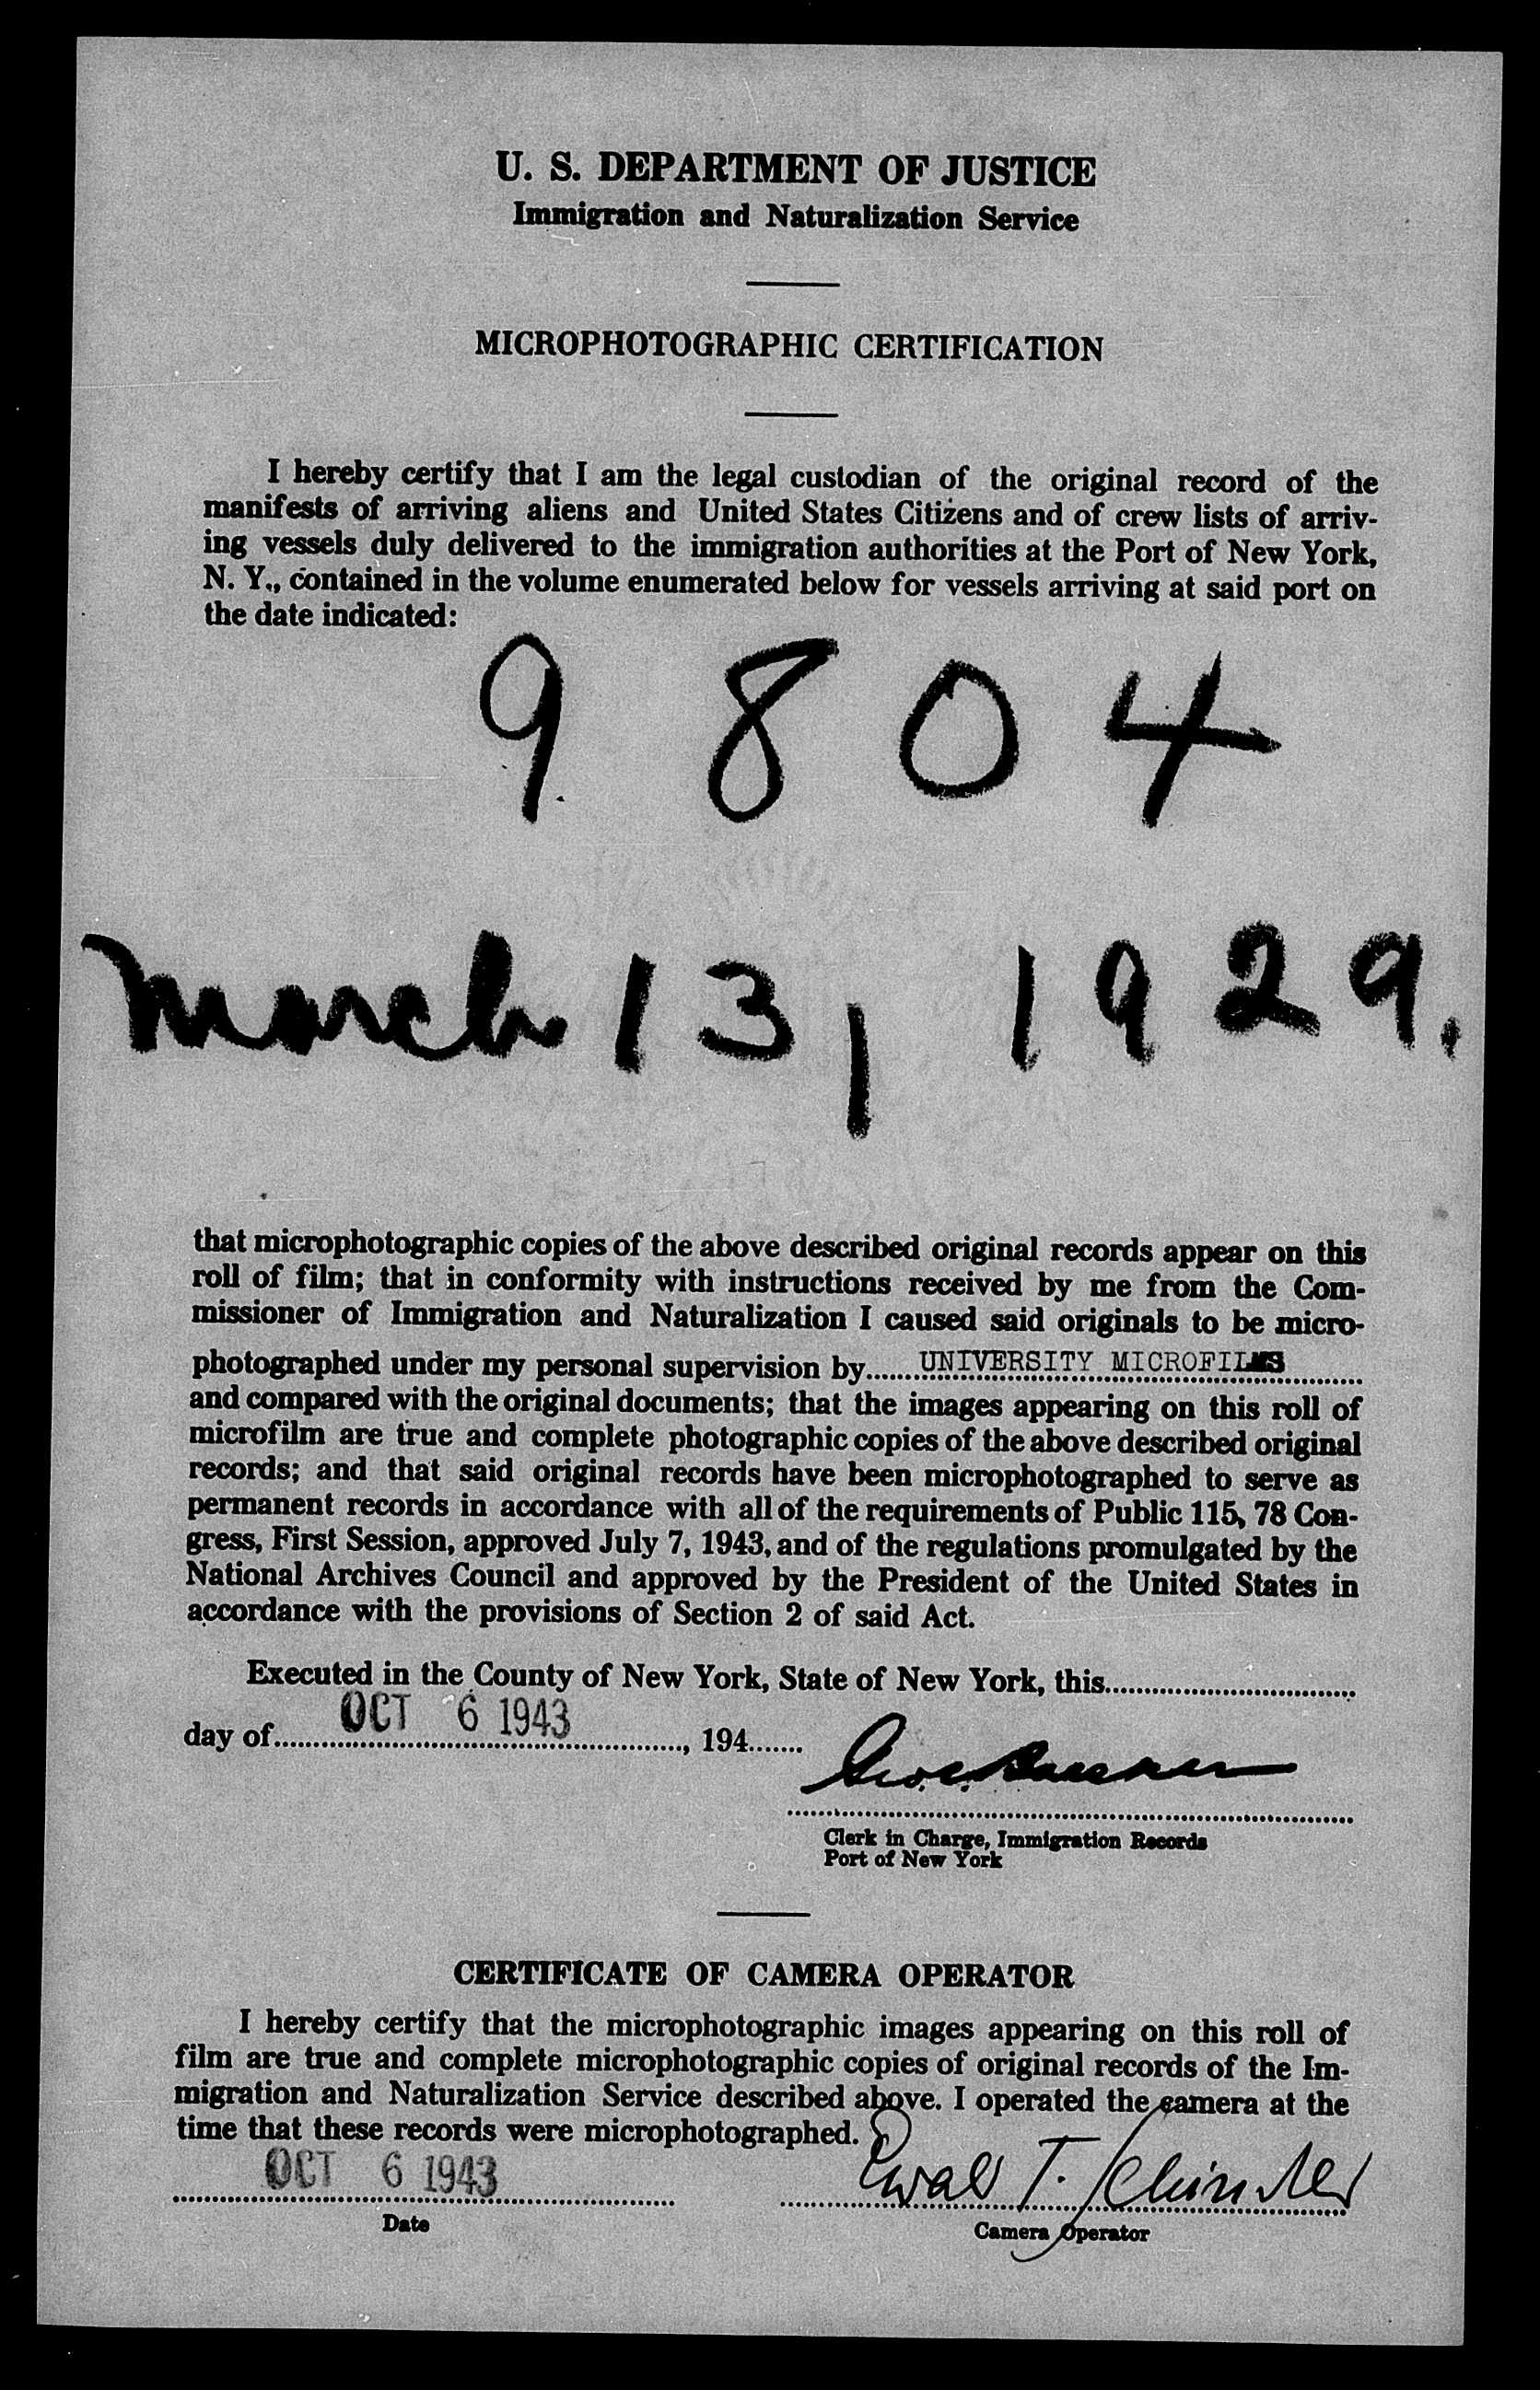 U. S. DEPARTMENT OF JUSTICE
Immigration and Naturalization Service
MICROPHOTOGRAPHIC CERTIFICATION
I hereby certify that I am the legal custodian of the original record of the
manifests of arriving aliens and United States Citizens and of crew lists of arriv-
ing vessels duly delivered to the immigration authorities at the Port of New York,
N. Y., contained in the volume enumerated below for vessels arriving at said port on
the date indicated:
9804
March 13, 1929.
that microphotographic copies of the above described original records appear on this
roll of film; that in conformity with instructions received by me from the Com-
missioner of Immigration and Naturalization I caused said originals to be micro-
photographed under my personal supervision by......UNIVERSITY MICROFILMS
and compared with the original documents; that the images appearing on this roll of
microfilm are true and complete photographic copies of the above described original
records; and that said original records have been microphotographed to serve as
permanent records in accordance with all of the requirements of Public 115, 78 Con-
gress, First Session, approved July 7, 1943, and of the regulations promulgated by the
National Archives Council and approved by the President of the United States in
accordance with the provisions of Section 2 of said Act.
Executed in the County of New York, State of New York, this..............................
day of.....OCT 6 1943....................., 194.......
Clerk in Charge, Immigration Records
Port of New York
CERTIFICATE OF CAMERA OPERATOR
I hereby certify that the microphotographic images appearing on this roll of
film are true and complete microphotographic copies of original records of the Im-
migration and Naturalization Service described above. I operated the camera at the
time that these records were microphotographed.
OCT 6 1943
Ewald T. Schindler
Date
Camera Operator